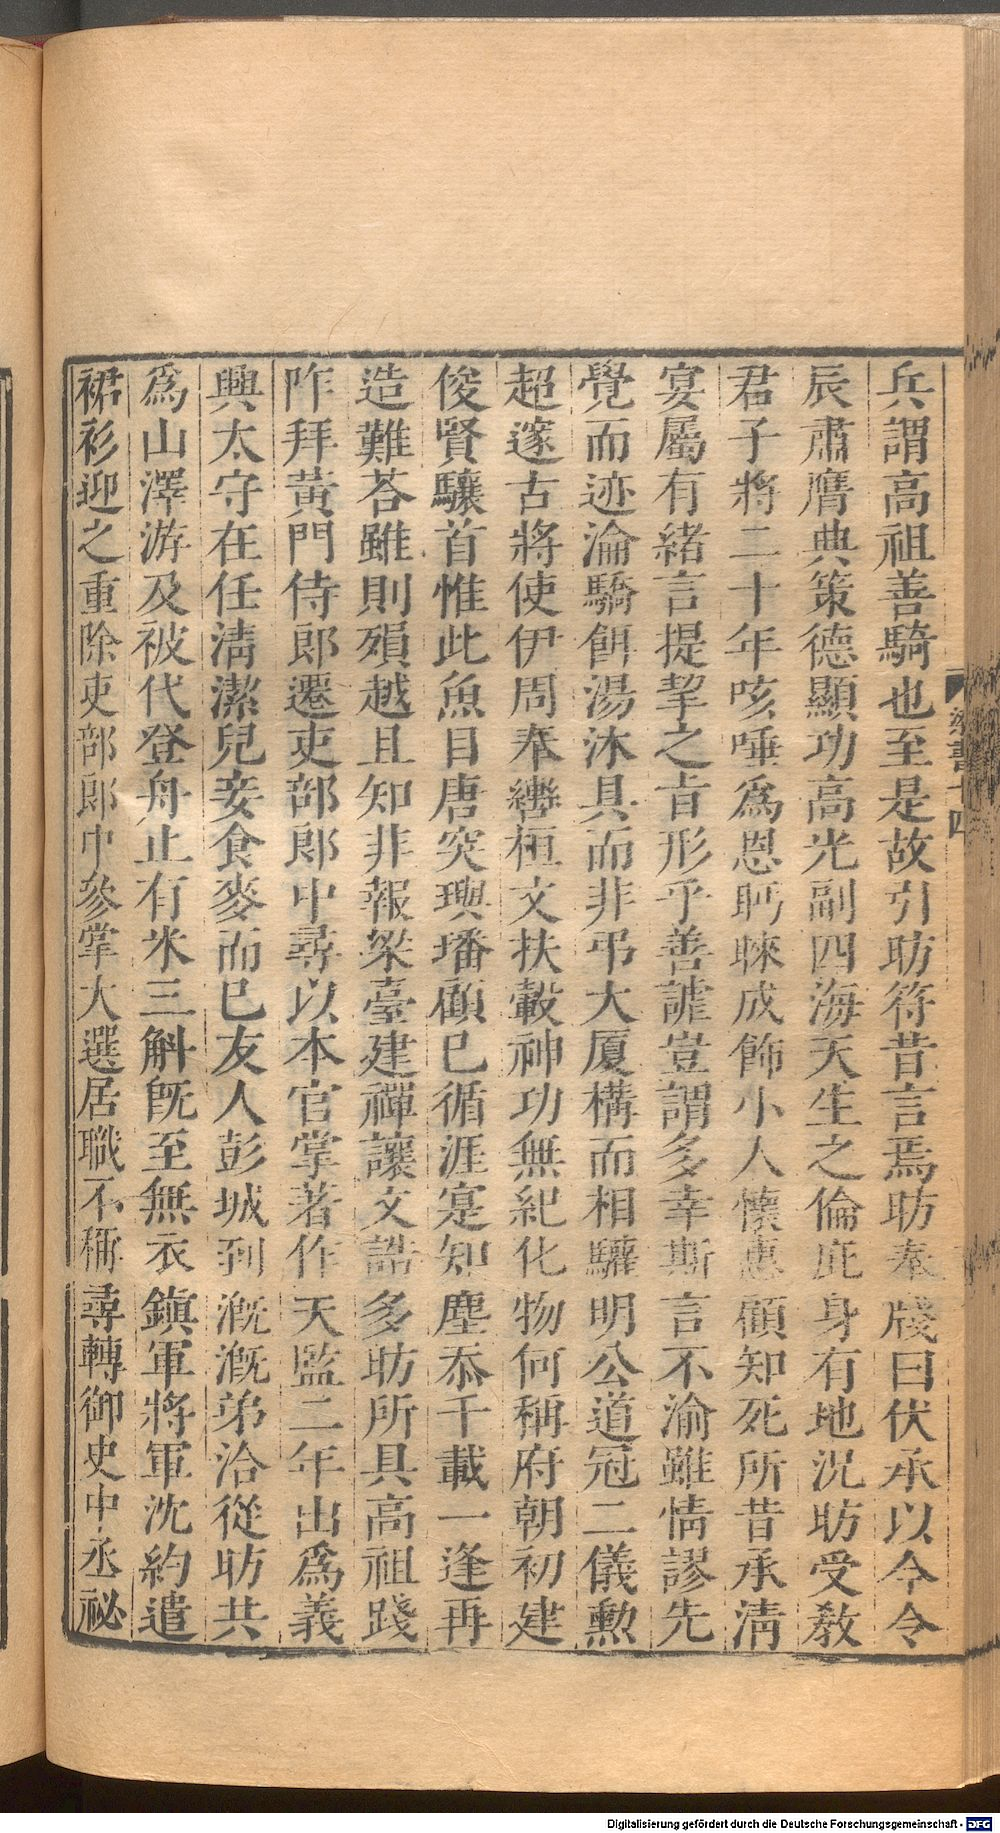 兵謂高祖善騎也至是故引昉符昔言焉昉奉牋曰伏承以今令
辰肅膺典策德顯功高光副四海天生之倫庇身有地況昉受敎
君子將二十年咳唾爲恩眄睞成飾小人懷惠顧知死所昔承清
宴屬有緒言提挈之旨形乎善謔豈謂多幸斯言不渝雖情謬先
覺而迹淪驕餌湯沐具而非弔大厦構而相驩明公道冠二儀勲
超邃古將使伊周奉轡桓文扶轂神功無紀化物何稱府朝初建
俊賢驤首惟此魚目唐突璵璠顧已循涯寔知塵忝千載一逢再
造難荅雖則殞越且知非報梁臺建禪讓文誥多昉所具高祖踐
阼拜黃門侍郎遷吏部郎中尋以本官掌著作天監二年出爲義
興太守在任淸潔兒妾食麥而已友人彭城到漑漑弟洽從昉共
爲山澤游及被代登舟止有米三斛旣至無衣鎭軍將軍沈約遣
裙衫迎之重除吏部郎中參掌大選居職不稱尋轉御史中丞祕
梁書十四
Digitalisierung gefördert durch die Deutsche Forschungsgemeinschaft - DFG